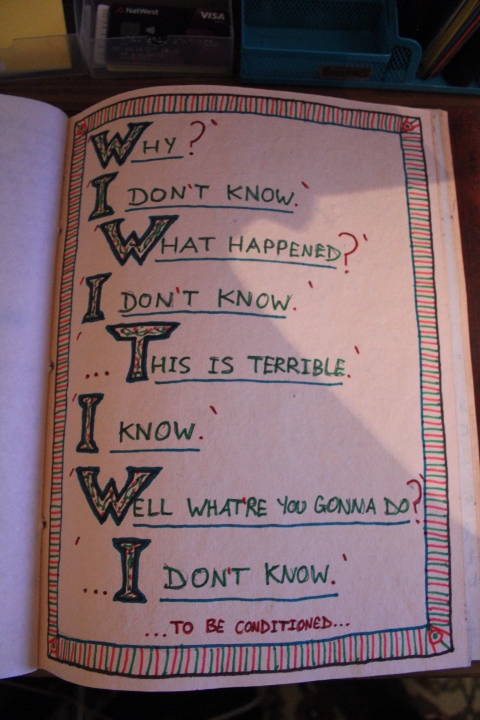 NatWest
VISA
WHY?'
I DON'T KNOW.'
WHAT HAPPENED?'
'I DON'T KNOW.'
'...THIS IS TERRIBLE.'
'I KNOW.'
'WELL WHAT'RE YOU GONNA DO?
'...I DON'T KNOW.'
...TO BE CONDITIONED...